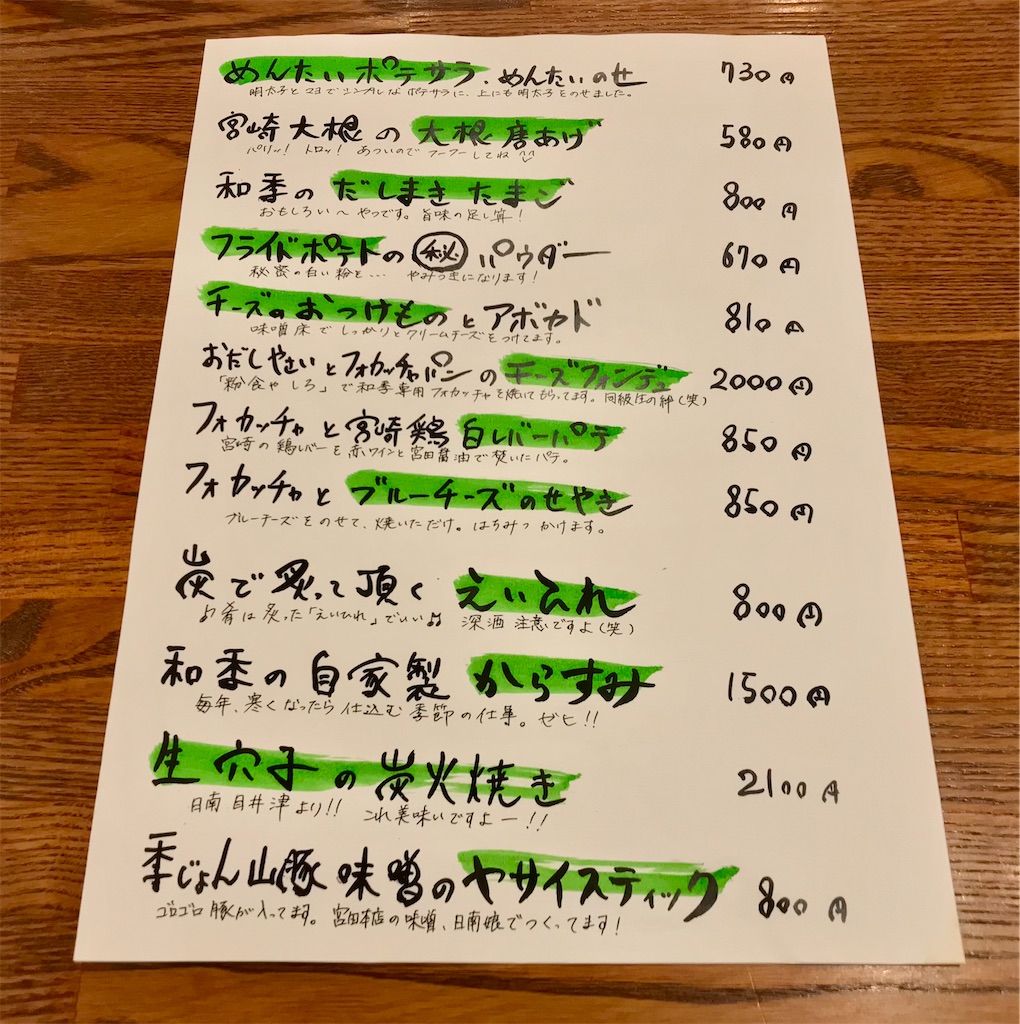 めんたいポテサラ、めんたいのせ 730円
明太子とマヨでシンプルなポテサラに、上にも明太子をのせました。
宮崎大根の大根唐あげ 580円
パリッ！ トロッ！ あついのでフーフーしてね
和季のだしまきたまご 800円
おもしろい〜やつです。旨味の足し算！
フライドポテトの㊙パウダー 670円
秘密の白い粉を… やみつきになります！
チーズのおつけものとアボカド 810円
味噌床でしっかりとクリームチーズをつけてます。
おだしやさいとフォカッチャパンのチーズフォンデュ 2000円
「粉食や しろ」で和季専用フォカッチャを焼いてもらってます。同級生の絆（笑）
フォカッチャと宮崎鶏白レバーパテ 850円
宮崎の鶏レバーを赤ワインと宮田醤油で焚いたパテ。
フォカッチャとブルーチーズのせやき 850円
ブルーチーズをのせて、焼いただけ。はちみつかけます。
炭で炙って頂くえいひれ 800円
♪肴は炙った「えいひれ」でいい♫ 深酒注意ですよ（笑）
和季の自家製からすみ 1500円
毎年、寒くなったら仕込む季節の仕事。ゼヒ！！
生穴子の炭火焼き 2100円
日南目井津より！！ これ美味いですよー！！
季じょん山豚味噌のヤサイスティック 800円
ゴロゴロ豚が入ってます。宮田本店の味噌、日南娘でつくってます！